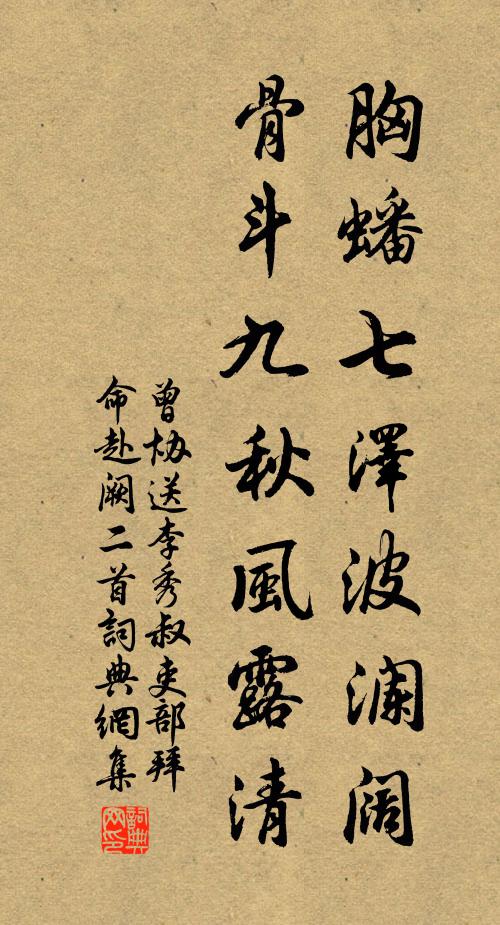 胸蟠七澤波澜阔
骨斗九秋風露清
曾協送李秀叔吏部拜
命赴阙二首詞典網集
詞典
网印